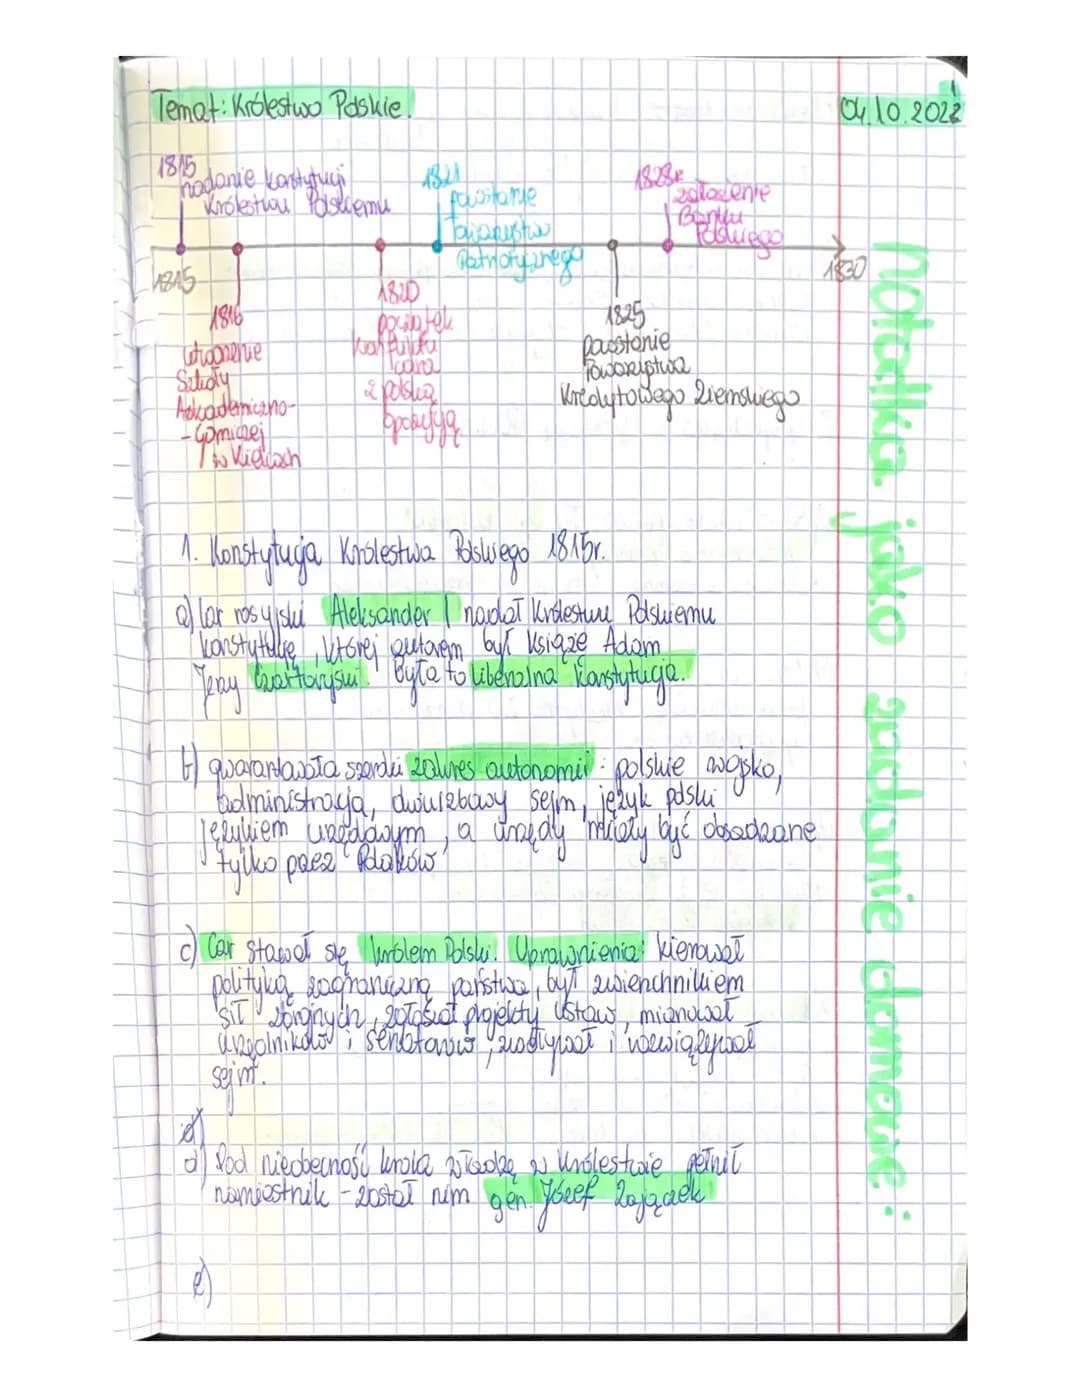 Temat: Królestwo Polskie.
04.10.2022
1815
nadanie konstytucji
Królestwu Polskiemu
1821
powstanie
Towarzystwa
Patriotycznego
1828r
założenie
Banku
Polskiego
1815
1830
1816
utworzenie
Szkoły
Adkademiczno-
-Górniczej
w Kielcach
1820
początek
konfliktu
cara
z polską
opozycją
1825
powstanie
Towarzystwa
Kredytowego Ziemskiego
notatka jako zadanie domowe:
1. Konstytucja Królestwa Polskiego 1815r.
a) Car rosyjski Aleksander I nadał Królestwu Polskiemu
konstytucję, której autorem był Książę Adam
Jerzy Czartoryski. Była to liberalna konstytucja.
b) gwarantowała szeroki zakres autonomii: polskie wojsko,
administracja, dwuizbowy sejm, język polski
językiem urzędowym, a urzędy miały być obsadzane
tylko przez Polaków
c) Car stawał się królem Polski. Uprawnienia: kierował
polityką zagraniczną państwa, był zwierzchnikiem
sił zbrojnych, zgłaszał projekty ustaw, mianował
urzędników i senatorów, zwoływał i rozwiązywał
sejm.
d) Pod niebecność króla władzę w Królestwie pełnił
namiestnik - został nim gen. Józef Zajączek
e)